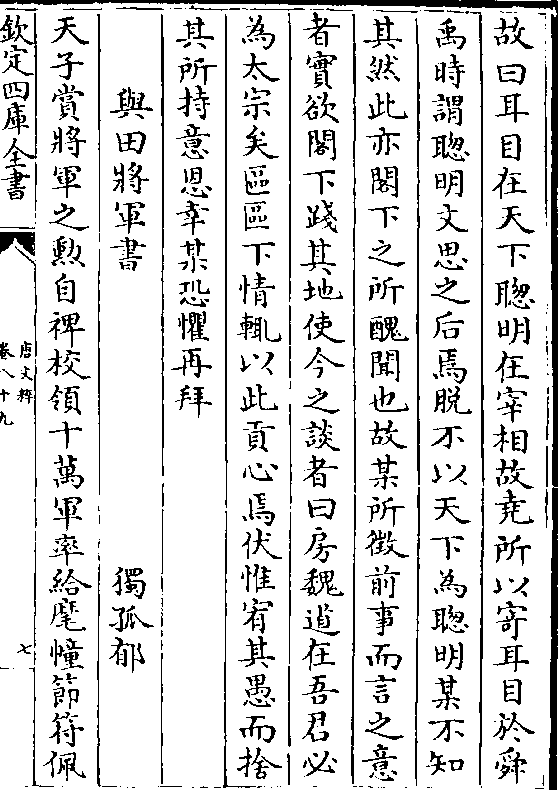 故曰耳目在天下聦明在宰相故堯所以寄耳目於舜
禹時謂聦明文思之后焉脱不以天下為聦明某不知
其然此亦閣下之所醜聞也故某所徴前事而言之意
者實欲閣下踐其地使今之談者曰房魏道在吾君必
為太宗矣區區下情輒以此貢心焉伏惟宥其愚而捨
其所持意恩幸某恐懼再拜
與田將軍書 獨孤郁
天子賞將軍之勲自裨校領十萬軍率給麾幢節符佩
欽定四庫全書
唐文粹
卷八十九
七